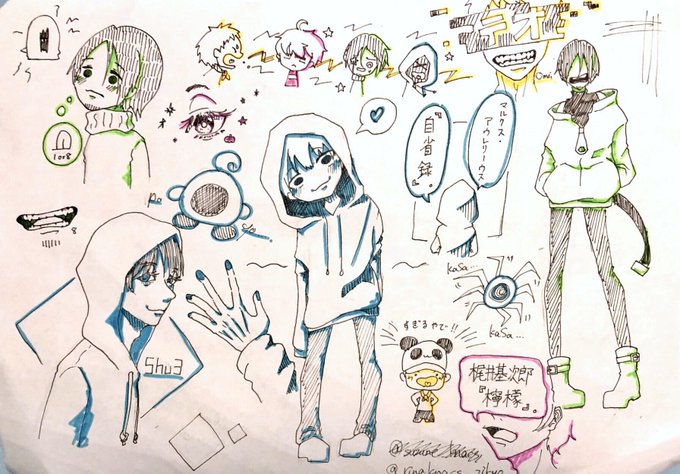 Omi
マルクス・
アウレーリウス
『自省録』。
1 or 8
8
Po
Shu3
kaSa...
kaSa...
すぎるやで!!
梶井基次郎
『檸檬』。